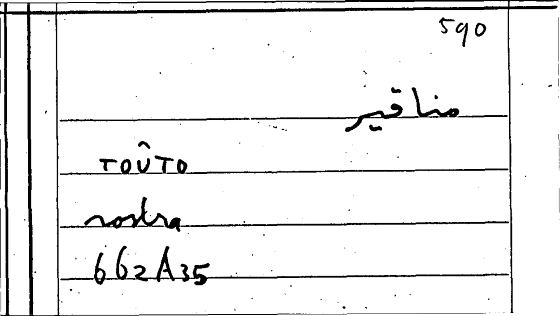 590
مناقير
τοῦτο
rostra
662A35